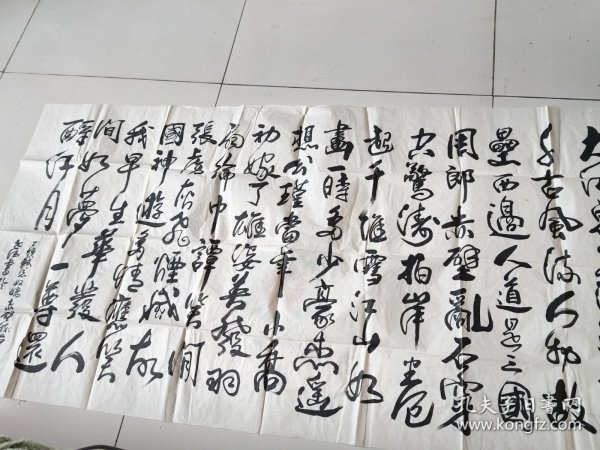 大江東
千古風流人物故
壘西邊人道是三國
周郎赤壁亂石穿
空驚濤拍岸卷
起千堆雪江山如
畫一時多少豪杰遥
想公瑾當年小喬
初嫁了雄姿英發羽
扇綸巾譚笑間
檣虜灰飛煙滅故
國神遊多情應笑
我早生華發人
間如夢一尊還
酹江月
孔夫子旧书网
www.kongfz.com